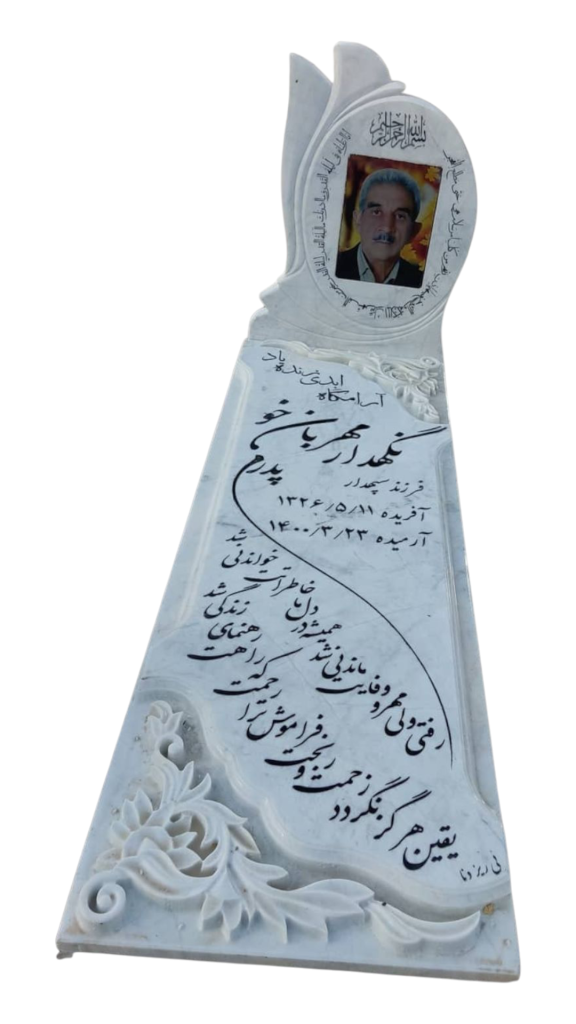 بسم الله الرحمن الرحیم
آرامگاه ابدی زنده یاد
نگهدار مهربان خو
پدرم
فرزند سپهدار
آفریده ۱۳۲۶/۵/۱۱
آرمیده ۱۴۰۰/۳/۲۳
رفتی ولی مهر و وفایت ماندنی شد
همیشه در دل ما خاطراتت خواندنی شد
یقین هرگز نگردد زحمت و رنجت فراموش
ترا رحمت که راهت رهنمای زندگی شد